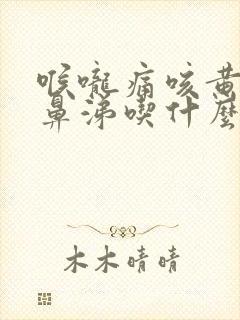 喉嚨痛咳黃
鼻涕喫什麼
木木晴晴